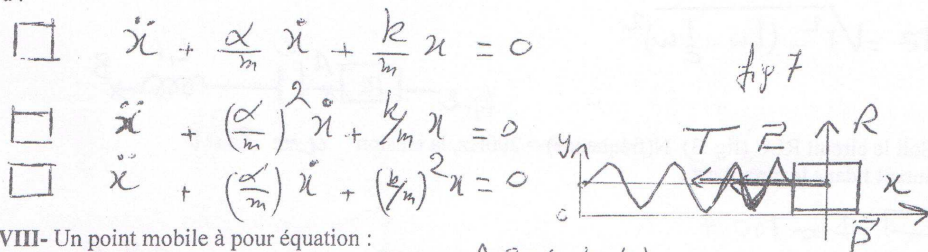 ẍ + α/m ẋ + k/m x = 0
ẍ + (α/m)² ẋ + k/m x = 0
ẍ + (α/m) ẋ + (k/m)² x = 0
fig 7
y T F R
x
o P⃗
VIII- Un point mobile à pour équation :